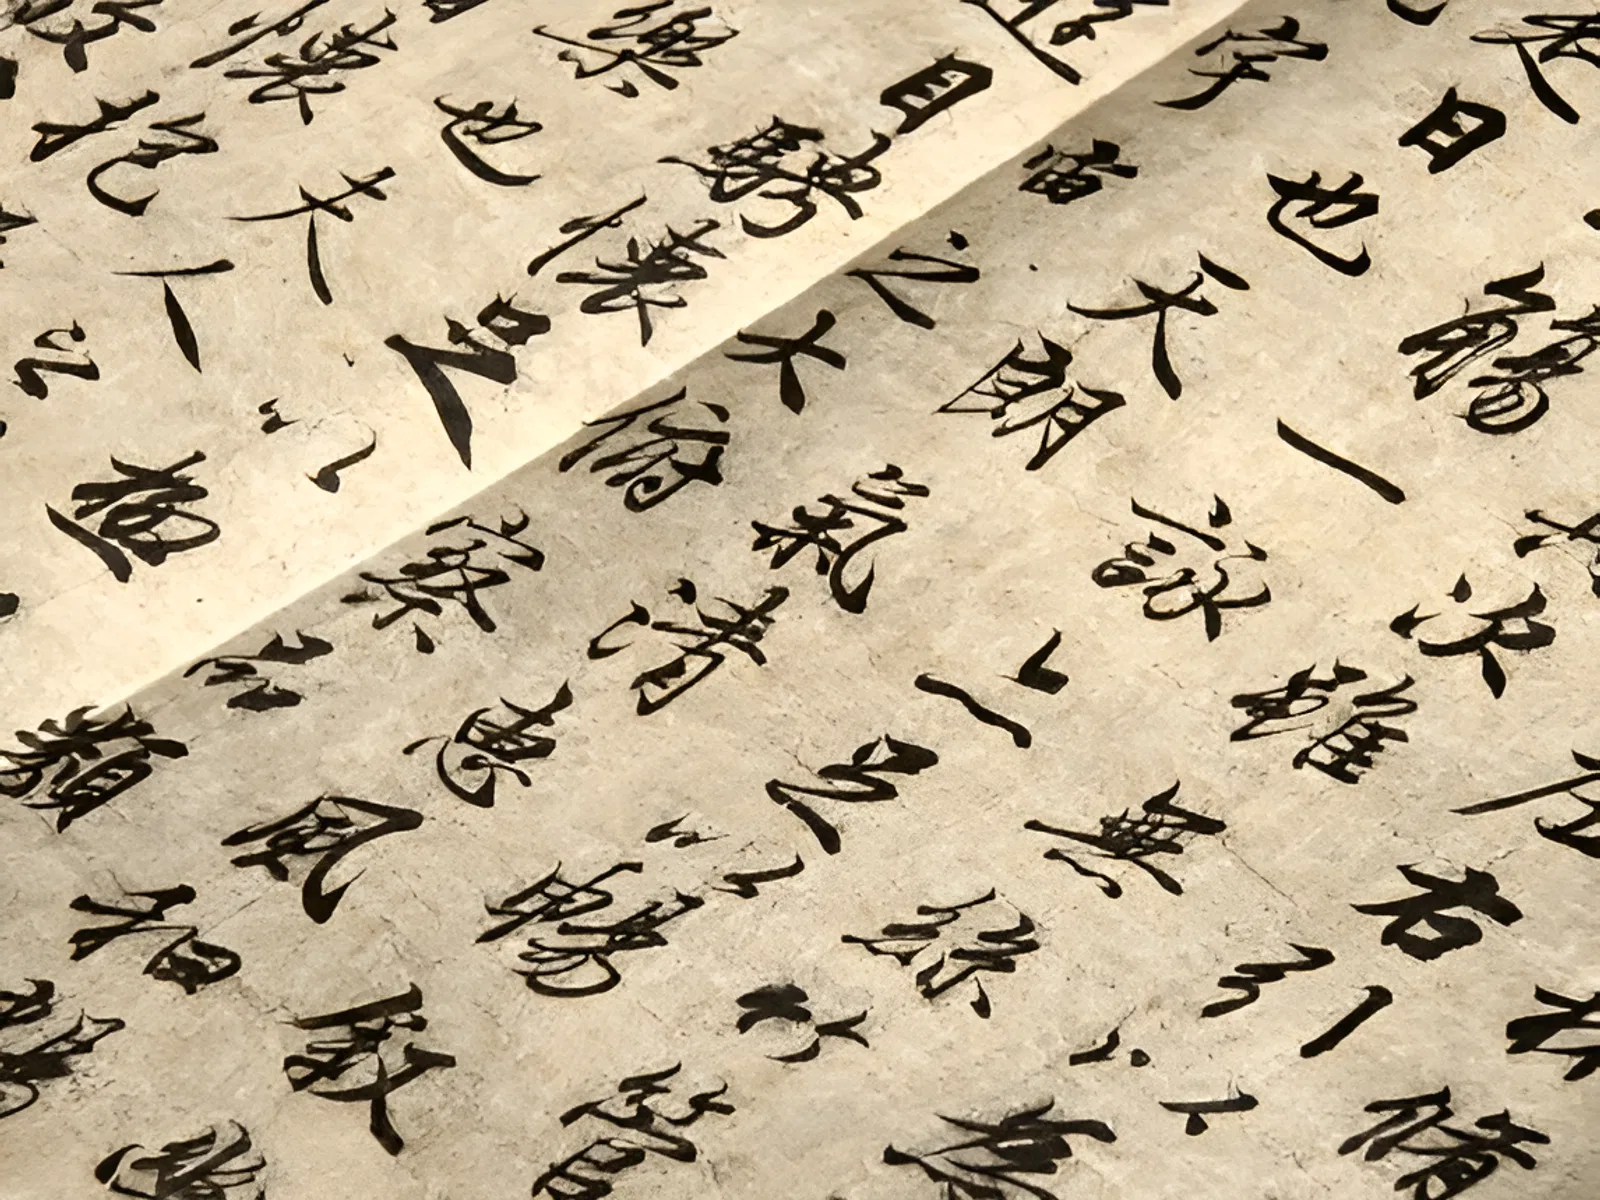 林脩
左右引以為
其次雖無絲竹管
觴一詠亦足以暢敘幽
是日也天朗氣清惠風和暢
宇宙之大俯察品類
遊目騁懷足以極
樂也夫人之
懷抱